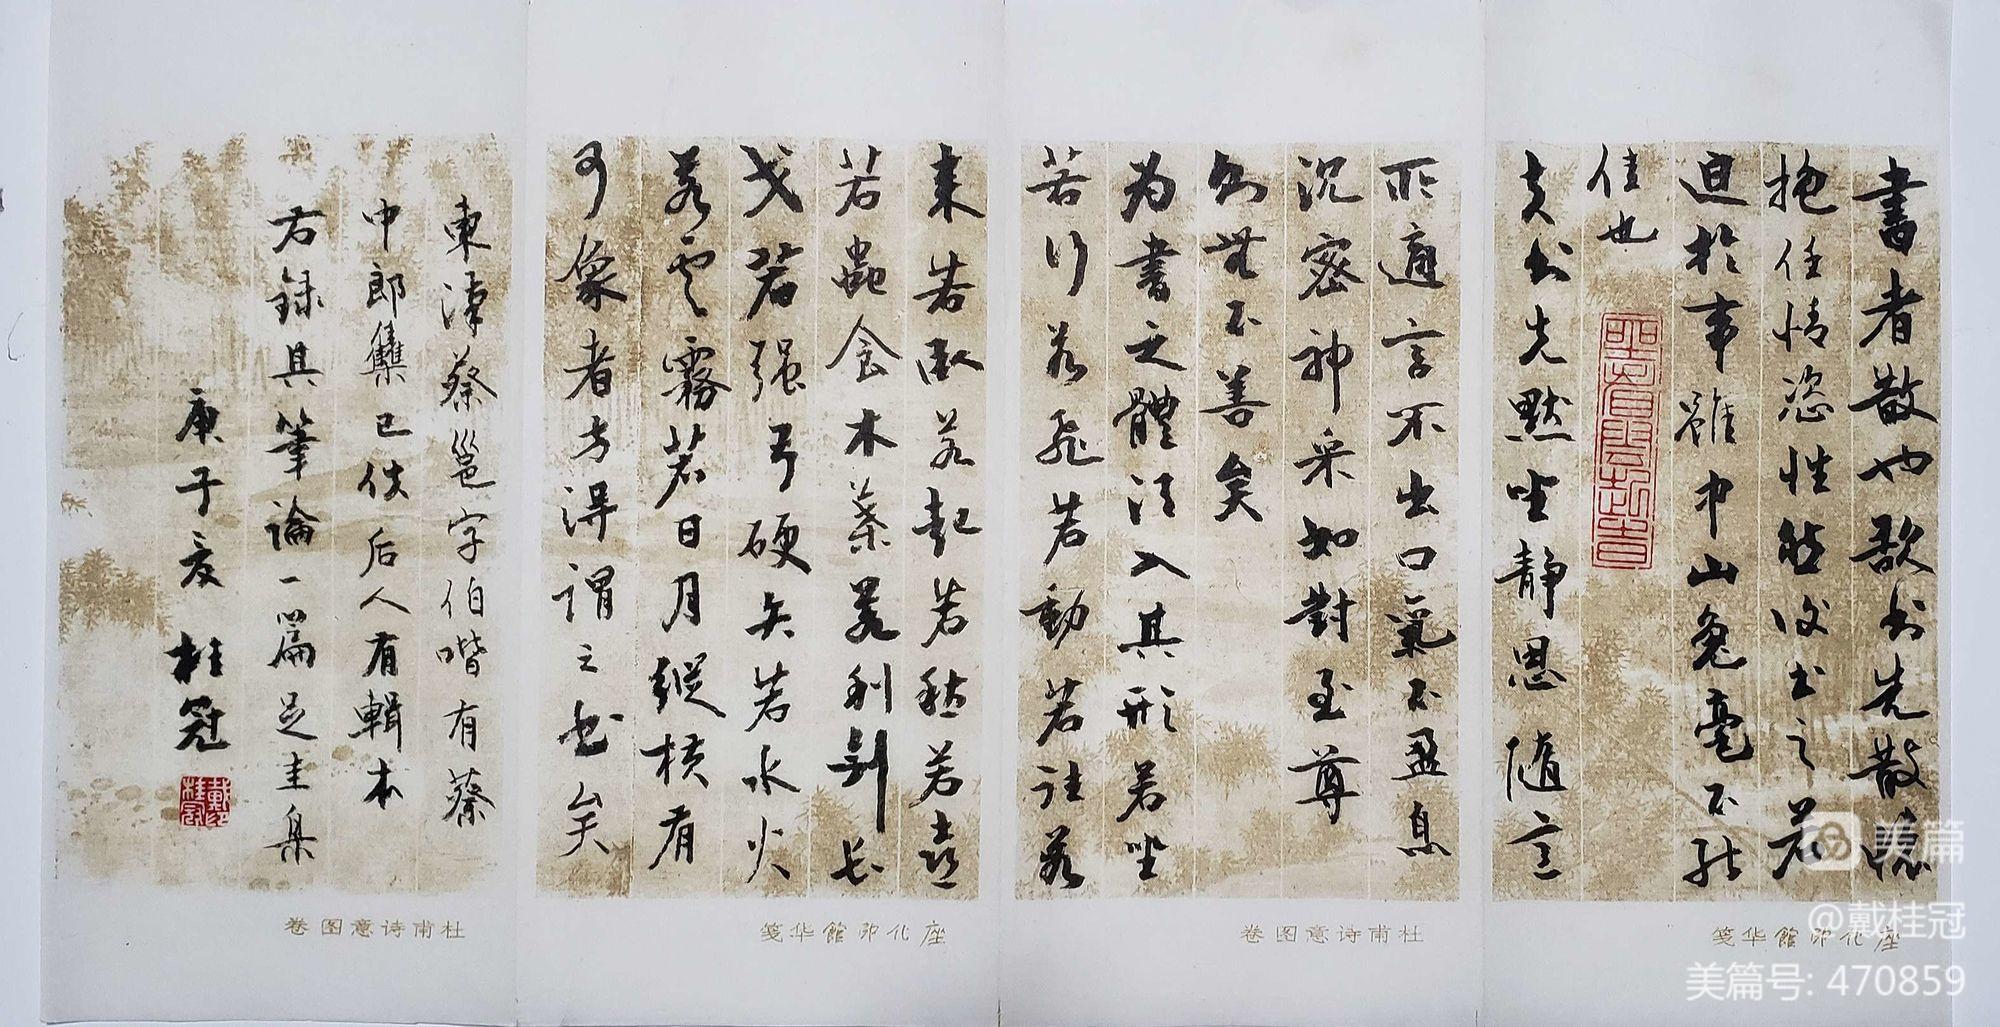 書者散也欲书先散懷
抱任情恣性然後书之若
迫於事雖中山兔毫不能
佳也
夫书先默坐静思随意
所適言不出口氣不盈息
沉密神采如對至尊
则無不善矣
为書之體須入其形若坐
若行若飛若動若往若
来若臥若起若愁若喜
若蟲食木葉若利剑长
戈若强弓硬矢若水火
若雲霧若日月縱横有
可象者方得谓之书矣
東漢蔡邕字伯喈有蔡
中郎集已佚后人有輯本
右録其筆論一篇
庚子夏 桂冠
戴桂冠
杜甫诗意图卷
座化印館华笺
杜甫诗意图卷
座化印館华笺
美篇
@戴桂冠
美篇号: 470859